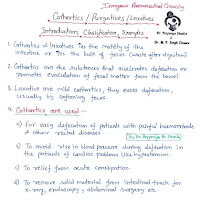 Inorganic Pharmaceutical Chemistry
Cathartics / Purgatives / Laxatives
Introduction, Classification, Examples
Dr. Puspendra Shukla
Dr. M. K. Singh Classes
1. Cathartics of laxatives ↑es the motility of the
intestine or ↑es the bulk of feces (waste after digestion)
2. Cathartics are the substances that accelerates defecation or
promotes evacuation of fecal matter from the bowel.
3. Laxative are mild cathartics, they eases defecation,
usually by softening feces.
4. Cathartics are used –
a) For easy defecation of patients with painful haemorrhoids
& other rectal diseases
By Dr. Puspendra Kr. Shukla
b) To avoid rise in blood pressure during defecation in
the patients of cardiac problems like hypertension.
c) To relief from acute constipation
d) To remove solid material from intestinal tract for
x-ray, endoscopy, abdominal surgery etc.